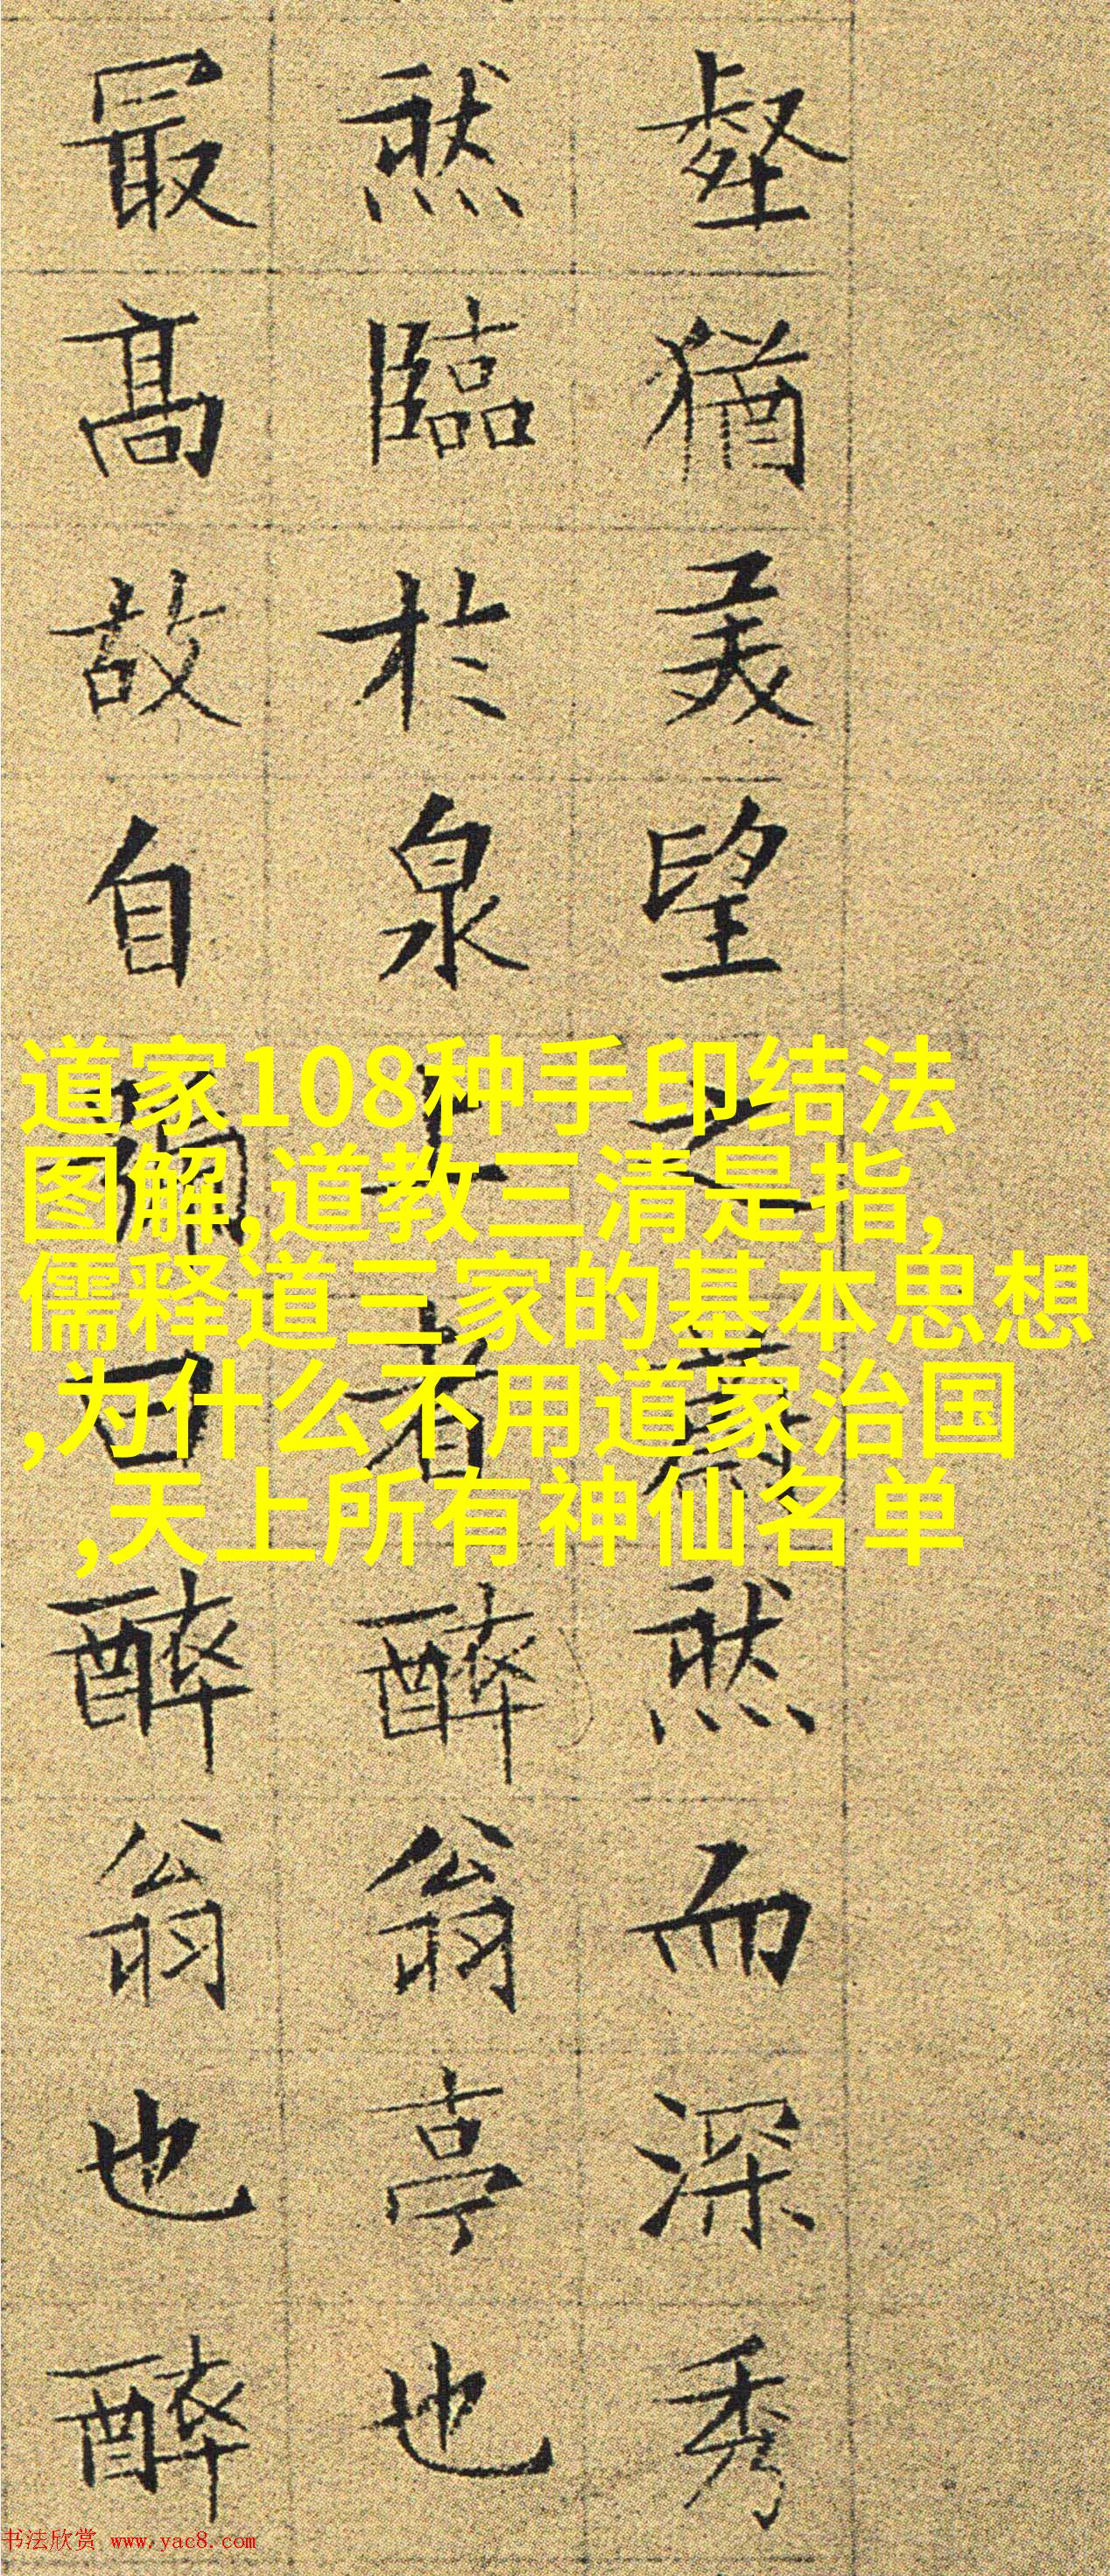 壑猶美望之蔚然而深秀
然臨於泉上者醉翁亭也
最高故自曰醉翁也醉
道家108种手印结法
图解,道教三清是指,
儒释道三家的基本思想
,为什么不用道家治国
,天上所有神仙名单
书法欣赏 www.yac8.com